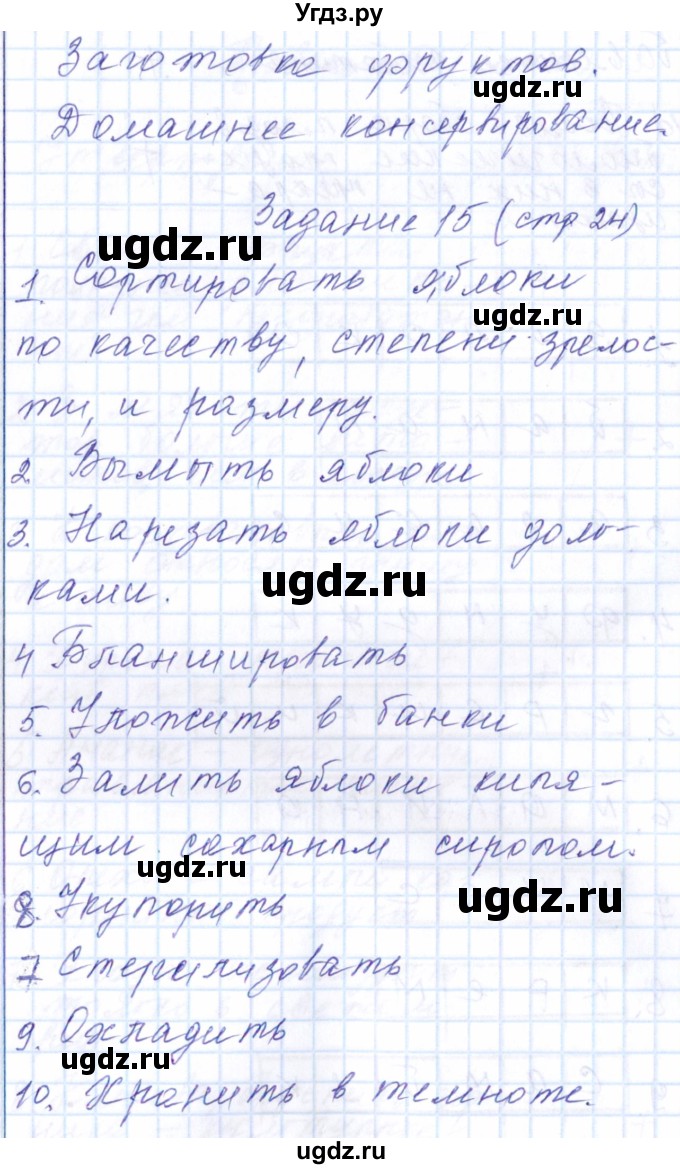 Угдз.ру
Заготовка фруктов.
ugdz.ru
Домашнее консервирование.
Задание 15 (стр 24)
ugdz.ru
1. Сортировать яблоки
ugdz.ru
по качеству, степени зрелос-
ти, и размеру.
2 Вымыть яблоки
3. Нарезать яблоки доль-
ugdz.ru
ками.
4 Бланшировать
5. Уложить в банки
6. Залить яблоки кипя-
щим сахарным сиропом.
ugdz.ru
ugdz.ru
8. Укупорить
7 Стерилизовать
9. Охладить
ugdz.ru
10. Хранить в темноте.
ugdz.ru
ugdz.ru